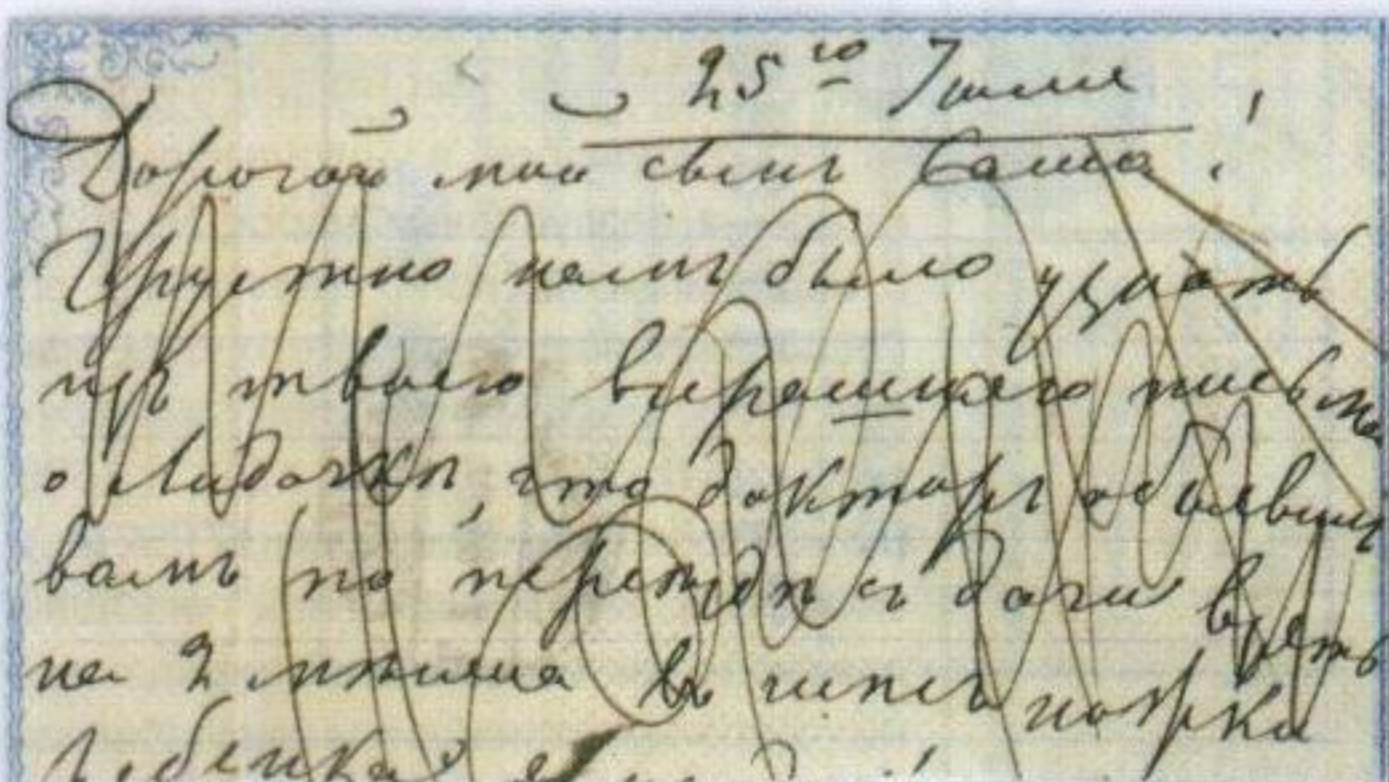 25го Iюля
Дорогой мой сынъ Саша!
Грустно намъ было узнать
изъ твоего вчерашняго письма
о Лидочкѣ, что докторъ объявилъ
вамъ по переѣздѣ съ дачи взять
на 2 мѣсяца въ гипсъ ножки
ребенка